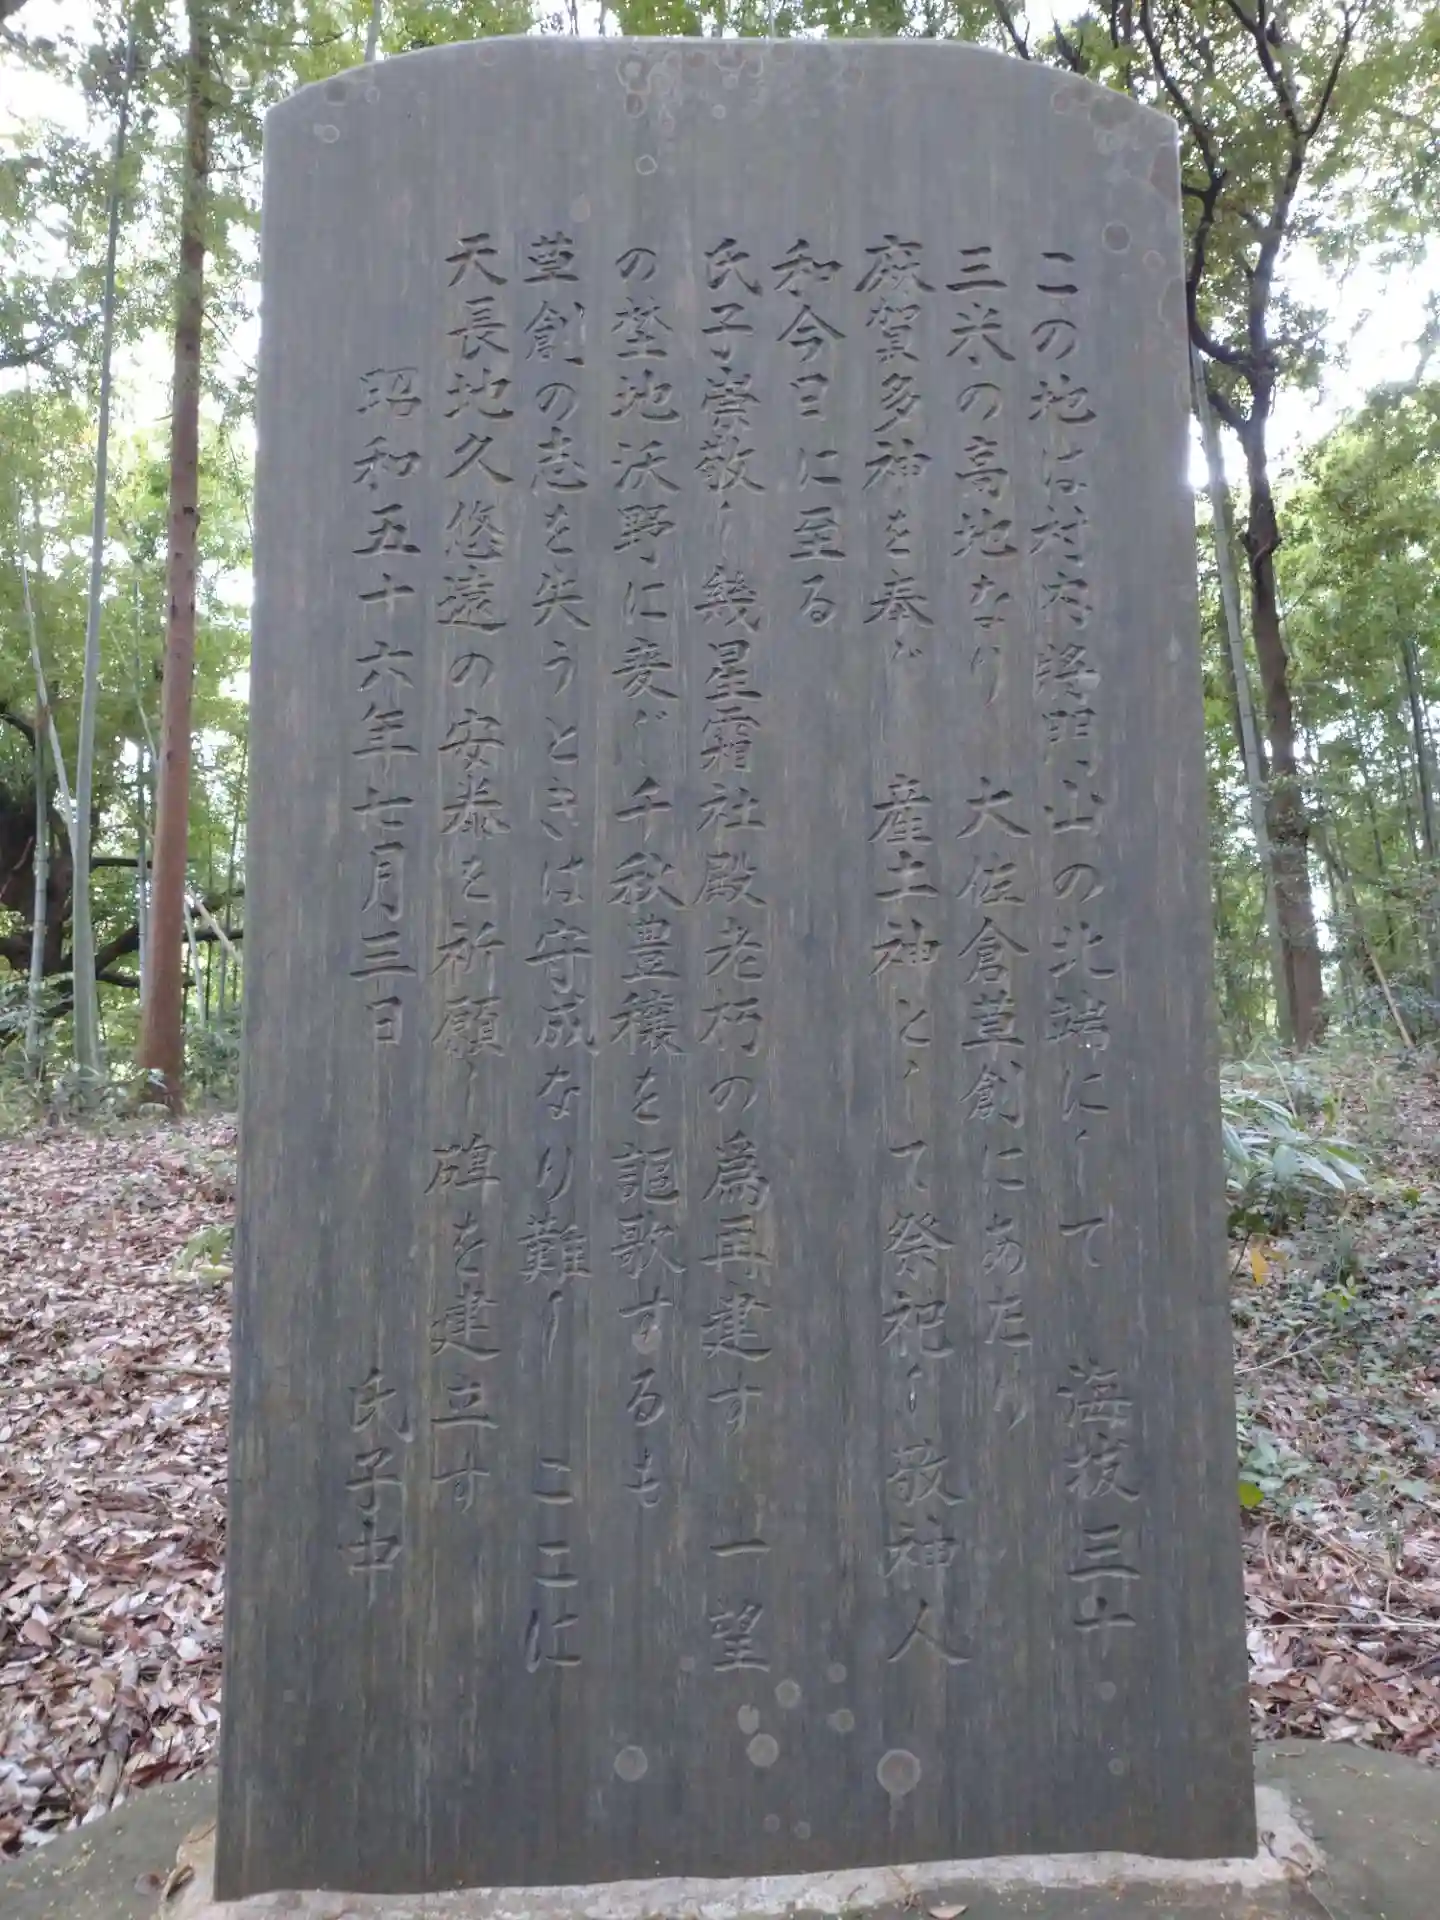 この地は村内将門山の北端にして　海抜三十
三米の高地なり　大佐倉草創にあたり
麻賀多神を奉じ　産土神として祭祀し敬神人
和今日に至る
氏子崇敬し幾星霜社殿老朽の為再建す　一望
の埜地沃野に変じ千秋豊穣を謳歌するも
草創の志を失うときは守成なり難し　ここに
天長地久悠遠の安泰を祈願し碑を建立す
昭和五十六年七月三日　氏子中